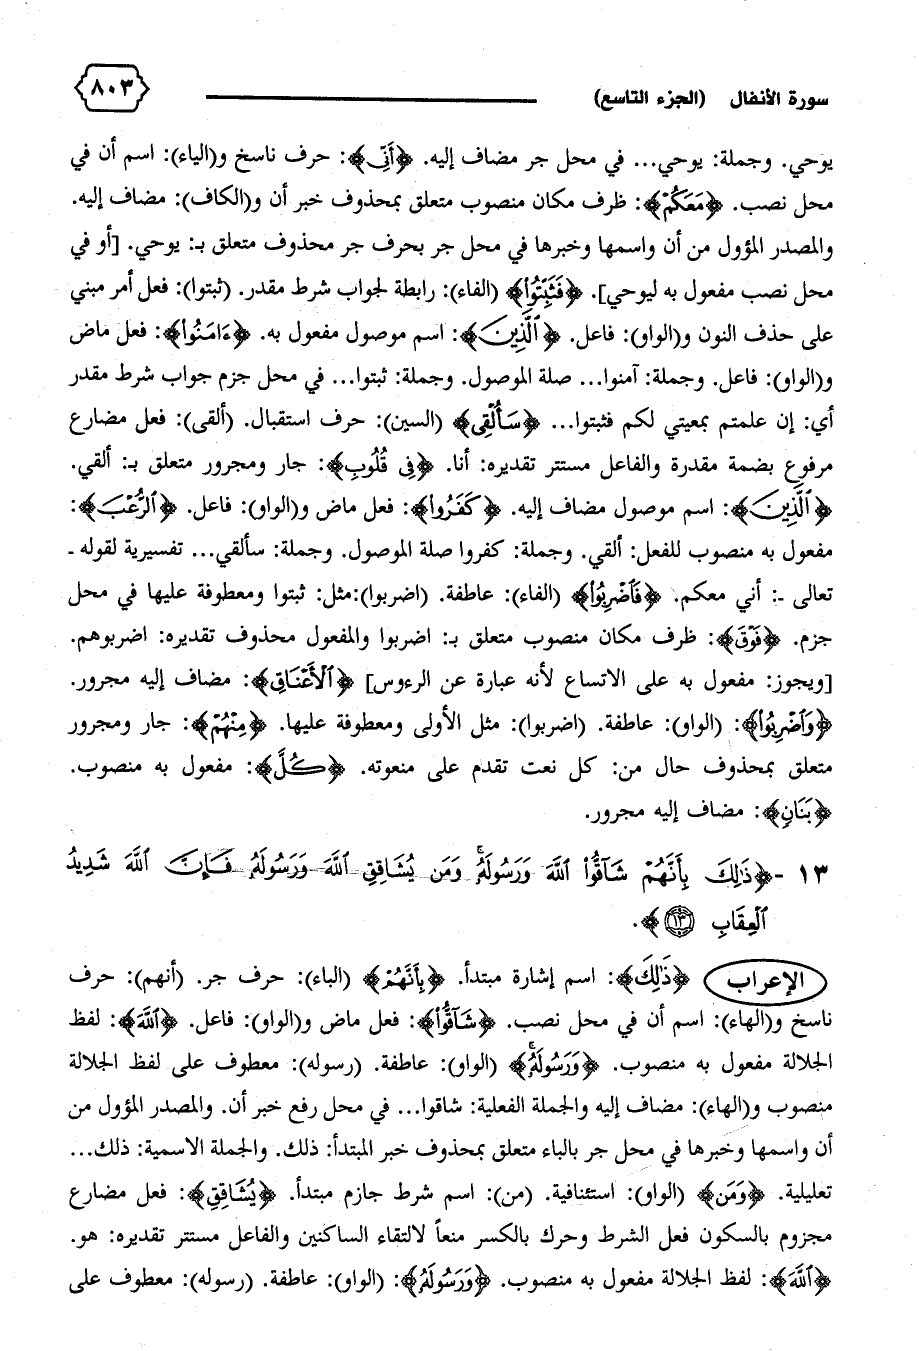 سورة الأنفال (الجزء التاسع) ٨٠٣
يوحي. وجملة: يوحي... في محل جر مضاف إليه. ﴿أَنِّي﴾: حرف ناسخ و(الياء): اسم أن في
محل نصب. ﴿مَعَكُمْ﴾: ظرف مكان منصوب متعلق بمحذوف خبر أن و(الكاف): مضاف إليه.
والمصدر المؤول من أن واسمها وخبرها في محل جر بحرف جر محذوف متعلق بـ: يوحي. [أو في
محل نصب مفعول به ليوحي]. ﴿فَثَبِّتُوا۟﴾ (الفاء): رابطة لجواب شرط مقدر. (ثبتوا): فعل أمر مبني
على حذف النون و(الواو): فاعل. ﴿ٱلَّذِينَ﴾: اسم موصول مفعول به. ﴿ءَامَنُوا۟﴾: فعل ماض
و(الواو): فاعل. وجملة: آمنوا... صلة الموصول. وجملة: ثبتوا... في محل جزم جواب شرط مقدر
أي: إن علمتم بمعيتي لكم فثبتوا... ﴿سَأُلْقِى﴾ (السين): حرف استقبال. (ألقى): فعل مضارع
مرفوع بضمة مقدرة والفاعل مستتر تقديره: أنا. ﴿فِى قُلُوبِ﴾: جار ومجرور متعلق بـ: ألقي.
﴿ٱلَّذِينَ﴾: اسم موصول مضاف إليه. ﴿كَفَرُوا۟﴾: فعل ماض و(الواو): فاعل. ﴿ٱلرُّعْبَ﴾:
مفعول به منصوب للفعل: ألقي. وجملة: كفروا صلة الموصول. وجملة: سألقي... تفسيرية لقوله ـ
تعالى ـ: أني معكم. ﴿فَٱضْرِبُوا۟﴾ (الفاء): عاطفة. (اضربوا):مثل: ثبتوا ومعطوفة عليها في محل
جزم. ﴿فَوْقَ﴾: ظرف مكان منصوب متعلق بـ: اضربوا والمفعول محذوف تقديره: اضربوهم.
[ويجوز: مفعول به على الاتساع لأنه عبارة عن الرءوس] ﴿ٱلْأَعْنَاقِ﴾: مضاف إليه مجرور.
﴿وَٱضْرِبُوا۟﴾: (الواو): عاطفة. (اضربوا): مثل الأولى ومعطوفة عليها. ﴿مِنْهُمْ﴾: جار ومجرور
متعلق بمحذوف حال من: كل نعت تقدم على منعوته. ﴿كُلَّ﴾: مفعول به منصوب.
﴿بَنَانٍ﴾: مضاف إليه مجرور.
١٣ -﴿ذَٰلِكَ بِأَنَّهُمْ شَآقُّوا۟ ٱللَّهَ وَرَسُولَهُۥ ۚ وَمَن يُشَاقِقِ ٱللَّهَ وَرَسُولَهُۥ فَإِنَّ ٱللَّهَ شَدِيدُ
ٱلْعِقَابِ ١٣﴾.
الإعراب ﴿ذَٰلِكَ﴾: اسم إشارة مبتدأ. ﴿بِأَنَّهُمْ﴾ (الباء): حرف جر. (أنهم): حرف
ناسخ و(الهاء): اسم أن في محل نصب. ﴿شَآقُّوا۟﴾: فعل ماض و(الواو): فاعل. ﴿ٱللَّهَ﴾: لفظ
الجلالة مفعول به منصوب. ﴿وَرَسُولَهُۥ ۚ﴾ (الواو): عاطفة. (رسوله): معطوف على لفظ الجلالة
منصوب و(الهاء): مضاف إليه والجملة الفعلية: شاقوا... في محل رفع خبر أن. والمصدر المؤول من
أن واسمها وخبرها في محل جر بالباء متعلق بمحذوف خبر المبتدأ: ذلك. والجملة الاسمية: ذلك...
تعليلية. ﴿وَمَن﴾ (الواو): استئنافية. (من): اسم شرط جازم مبتدأ. ﴿يُشَاقِقِ﴾: فعل مضارع
مجزوم بالسكون فعل الشرط وحرك بالكسر منعاً لالتقاء الساكنين والفاعل مستتر تقديره: هو.
﴿ٱللَّهَ﴾: لفظ الجلالة مفعول به منصوب. ﴿وَرَسُولَهُۥ﴾: (الواو): عاطفة. (رسوله): معطوف على